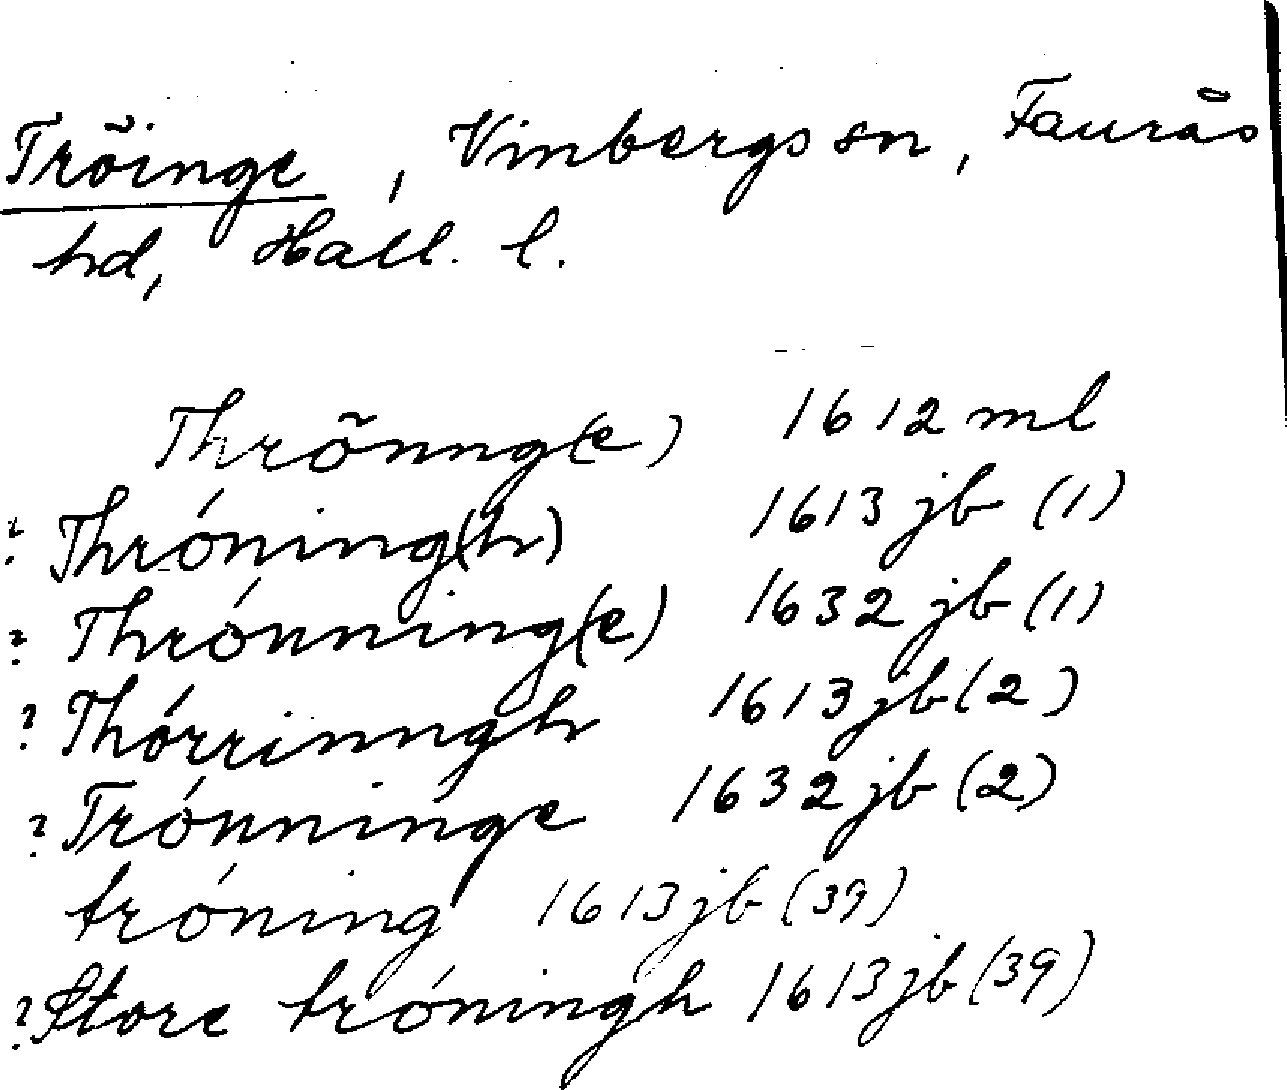 Tröinge, Vinbergs sn, Faurås
hd, Hall. l.
Thrönng(e) 1612 ml
? Thróning(h) 1613 jb (1)
? Thrónning(e) 1632 jb (1)
? Thórrinngh 1613 jb (2)
? Trónninge 1632 jb (2)
tróning 1613 jb (39)
? Store tróningh 1613 jb (39)